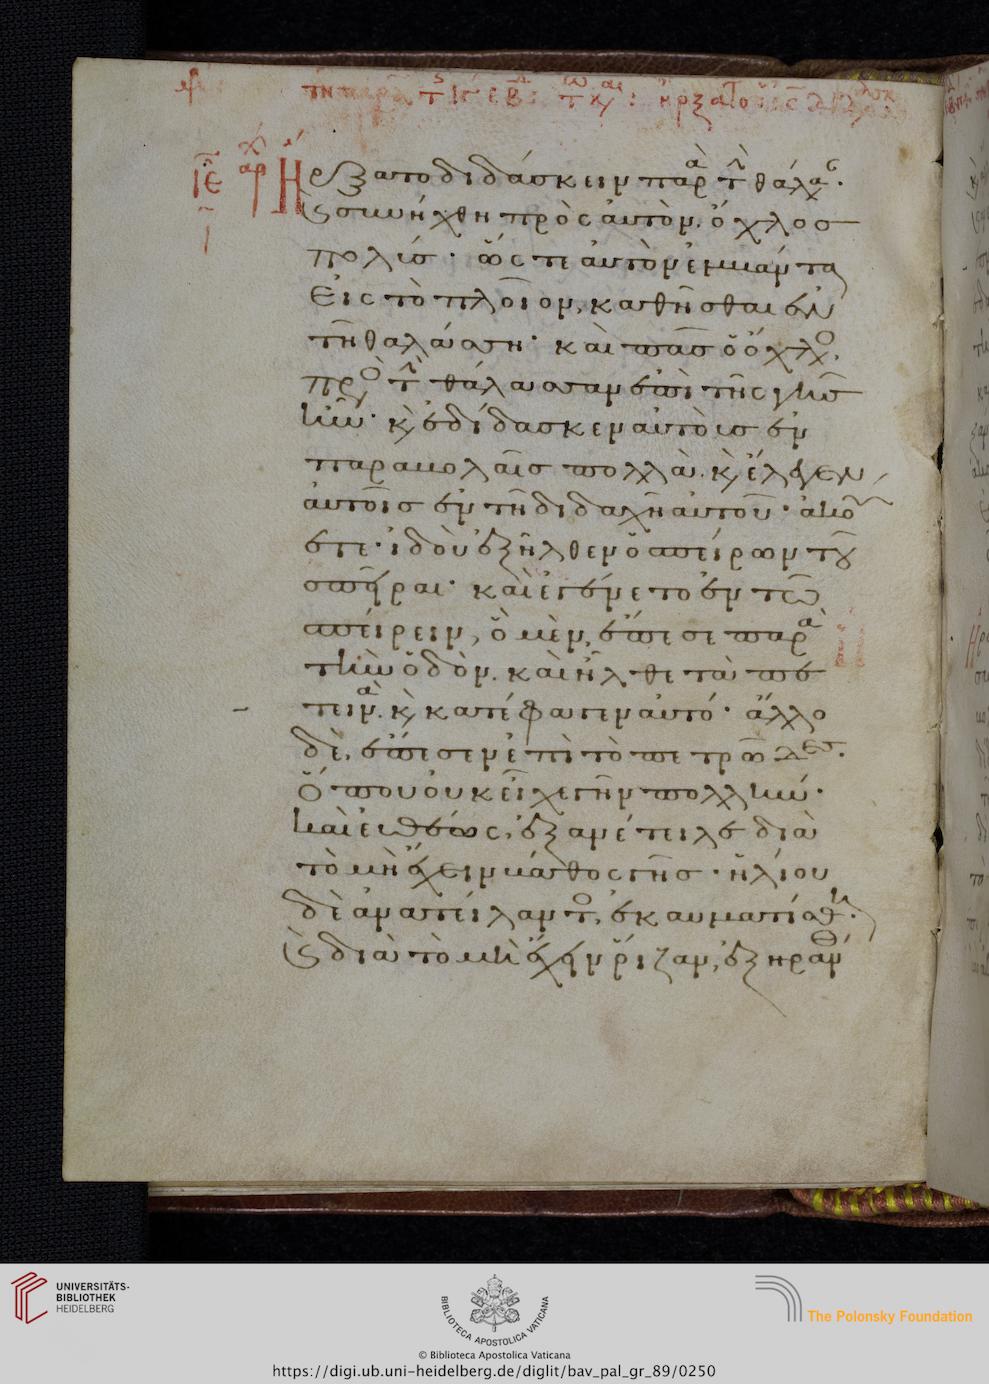 Ἤρξατο διδάσκειν παρὰ τὴν θάλασ·
καὶ συνήχθη πρὸς αὐτὸν ὄχλος
πολύς· ὥστε αὐτὸν ἐμβάντα
εἰς τὸ πλοῖον, καθῆσθαι ἐν
τῇ θαλάσση· καὶ πᾶς ὁ ὄχλο
πρὸ τὴν θάλασσαν ἐπὶ τῆς γῆς
ἦν· κ̀ ἐδίδασκεν αὐτοὺς ἐν
παραβολαῖς πολλὰ. κ̀ ἔλεγεν
αὐτοῖς ἐν τῇ διδαχῇ αὐτοῦ· ἀκού
ετε· ἰδοὺ ἐξῆλθεν ὁ σπείρων τοῦ
σπεῖραι· καὶ ἐγένετο ἐν τῶ
σπείρειν, ὃ μὲν, ἔπεσε παρὰ
τὴν ὁδὸν. καὶ ἦλθε τὰ πε
τεινὰ. κ̀ κατέφαγεν αὐτό· ἄλλο
δὲ, ἔπεσεν ἐπὶ τὸ πετρῶδες.
ὅπου οὐκ εἶχε γῆν πολλὴν·
καὶ εὐθέως, ἐξανέτειλε διὰ
τὸ μὴ ἔχειν βάθος γῆς· ἡλίου
δὲ ἀνατείλαντο, ἐκαυματίσθη.
καὶ διὰ τὸ μὴ ἔχειν ῥίζαν, ἐξηράνθ
UNIVERSITÄTS-
BIBLIOTHEK
HEIDELBERG
BIBLIOTECA APOSTOLICA VATICANA
The Polonsky Foundation
© Biblioteca Apostolica Vaticana
https://digi.ub.uni-heidelberg.de/diglit/bav_pal_gr_89/0250